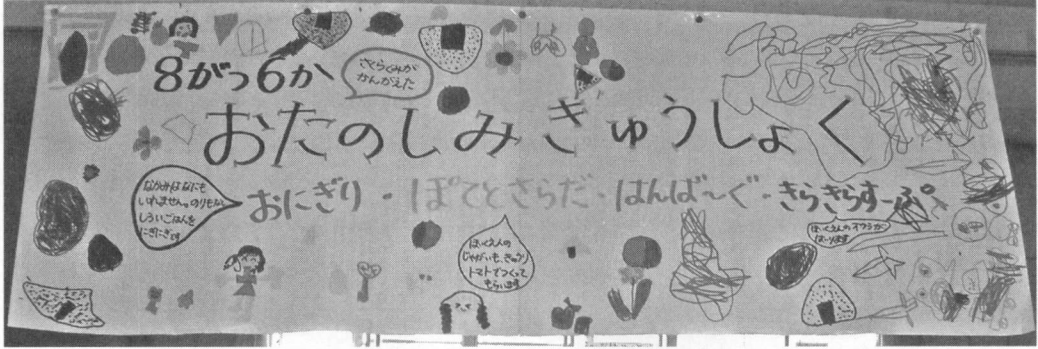 8がつ6か
さくらぐみが
かんがえた
おたのしみきゅうしょく
おにぎり・ぽてとさらだ・はんばーぐ・きらきらすーぷ
なかみはなにも
いれません。のりもなし
しろいごはんを
にぎにぎです
ほいくえんの
じゃがいも、きゅうり
トマトでつくって
もらいます
ほいくえんのオクラが
はいります